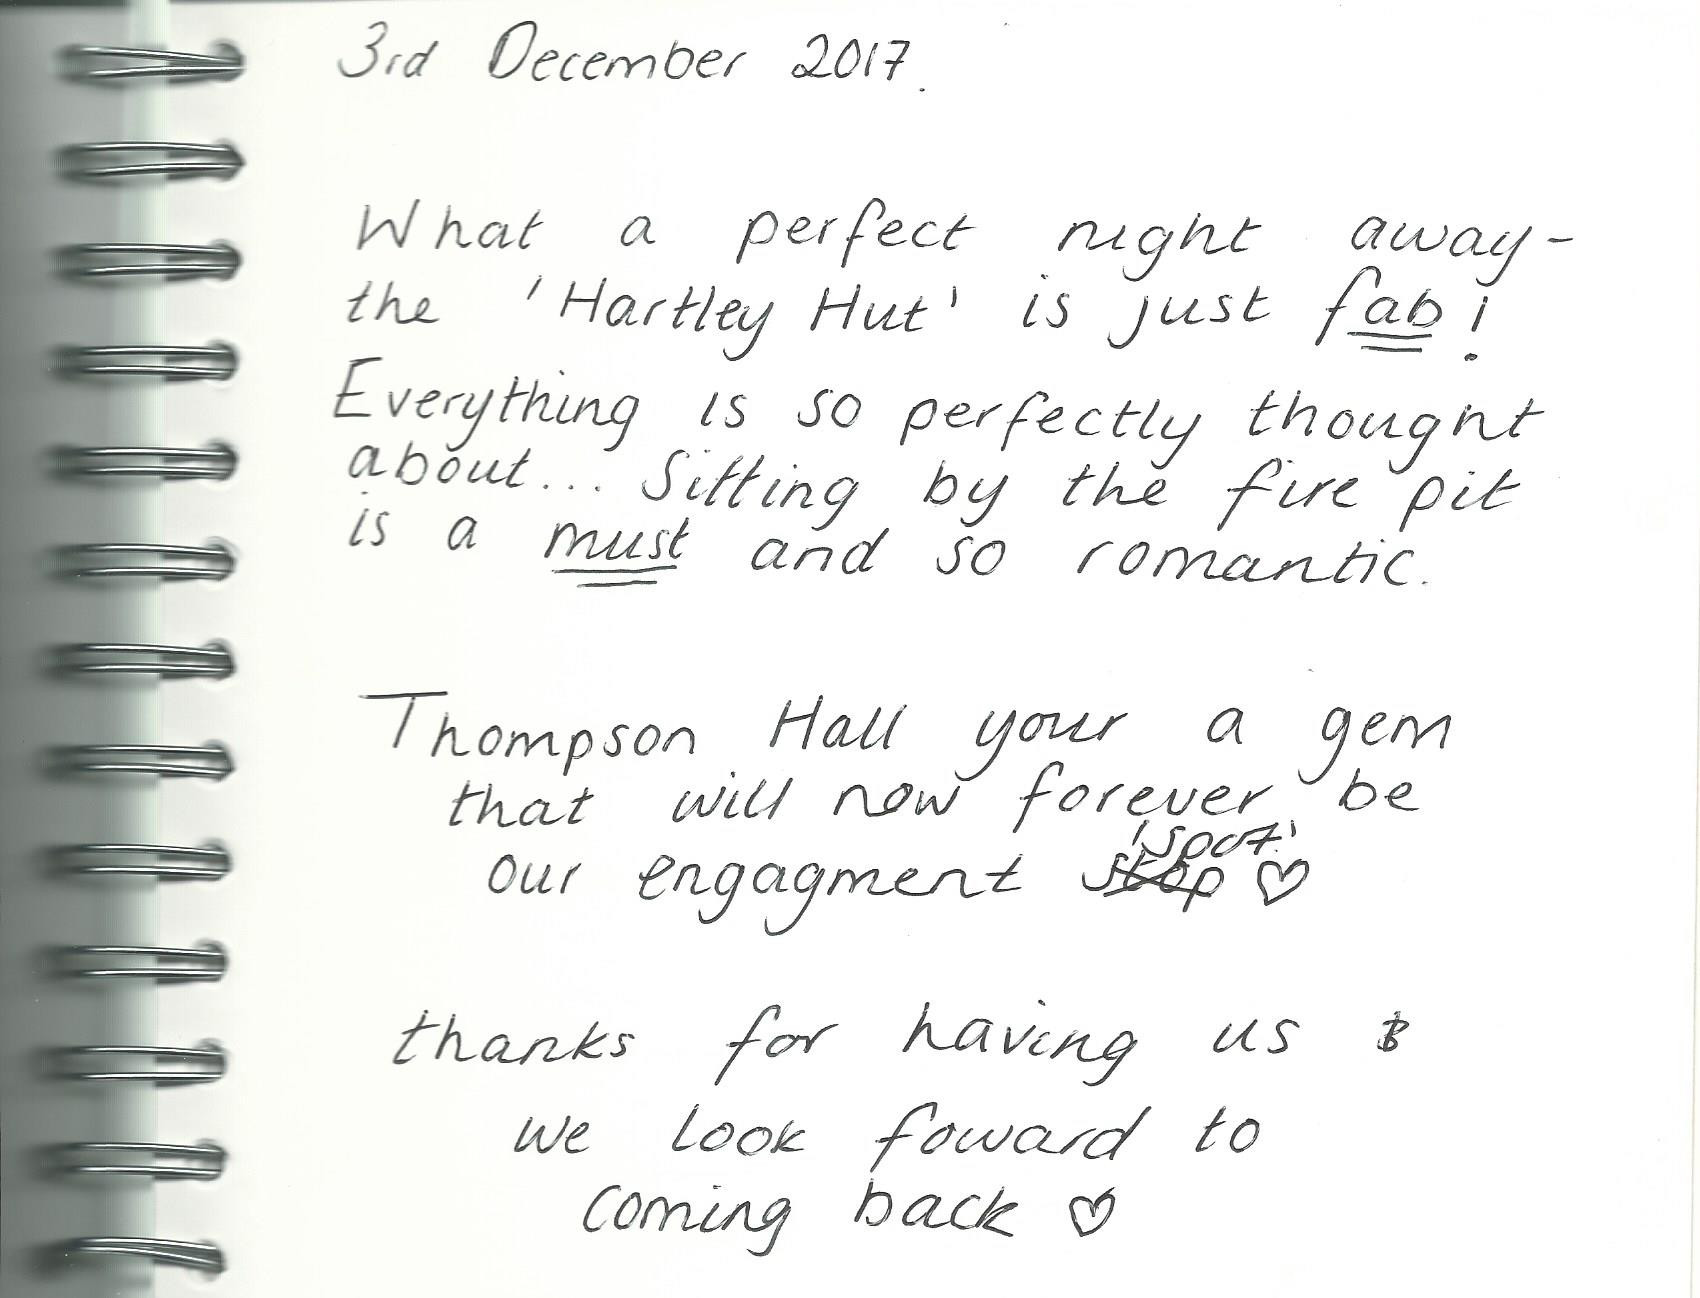 3rd December 2017.
What a perfect night away -
the 'Hartley Hut' is just fab!
Everything is so perfectly thought
about... Sitting by the fire pit
is a must and so romantic.
Thompson Hall your a gem
that will now forever be
'spot'
our engagment stop ♡
thanks for having us &
we look foward to
coming back ♡